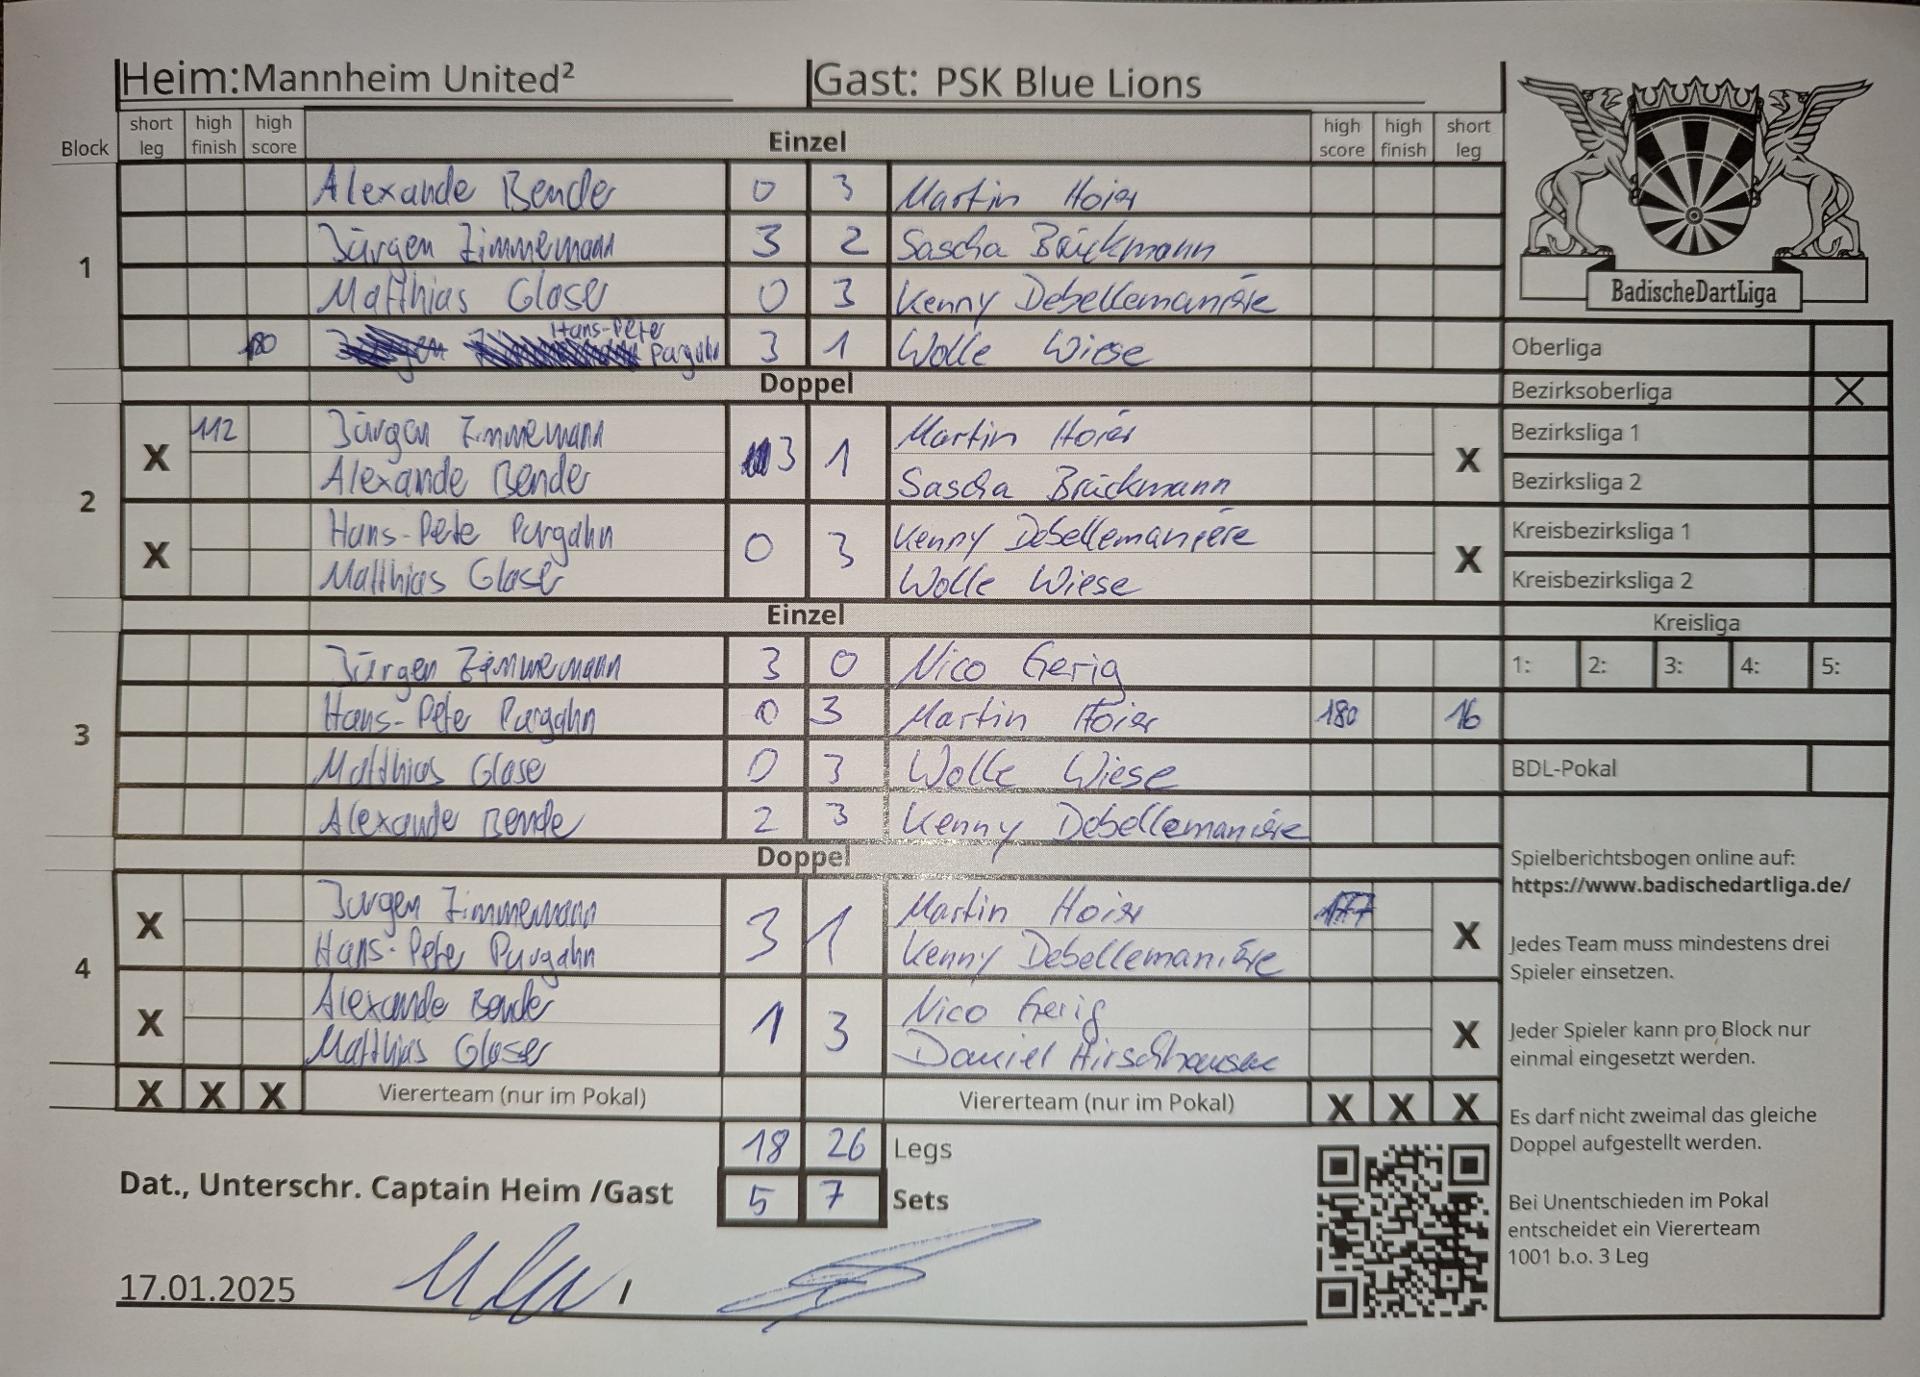 Heim: Mannheim United² Gast: PSK Blue Lions
Block short leg high finish high score Einzel high score high finish short leg
1
Alexande Bende 0 3 Martin Hoier
Jürgen Zimmemann 3 2 Sascha Brückmann
Matthias Glaser 0 3 Kenny Debellemanière
180 Hans-Peter Purgahn 3 1 Wolle Wiese
Doppel
2
X 112 Jürgen Zimmemann 3 1 Martin Hoier X
Alexande Bender Sascha Brückmann
X Hans-Pete Purgahn 0 3 Kenny Debellemanière X
Matthias Glaser Wolle Wiese
Einzel
3
Jürgen Zimmemann 3 0 Nico Gerig
Hans-Pete Purgahn 0 3 Martin Hoier 180 16
Matthias Glase 0 3 Wolle Wiese
Alexande Bende 2 3 Kenny Debellemanière
Doppel
4
X Jurgen Zimmemann 3 1 Martin Hoier X
Hans-Pete Purgahn Kenny Debellemanière
X Alexande Bende 1 3 Nico Gerig X
Matthias Glaser Daniel Hirschhausen
X X X Viererteam (nur im Pokal) Viererteam (nur im Pokal) X X X
18 26 Legs
5 7 Sets
Dat., Unterschr. Captain Heim /Gast
17.01.2025 /
BadischeDartLiga
Oberliga
Bezirksoberliga X
Bezirksliga 1
Bezirksliga 2
Kreisbezirksliga 1
Kreisbezirksliga 2
Kreisliga
1: 2: 3: 4: 5:
BDL-Pokal
Spielberichtsbogen online auf:
https://www.badischedartliga.de/
Jedes Team muss mindestens drei
Spieler einsetzen.
Jeder Spieler kann pro Block nur
einmal eingesetzt werden.
Es darf nicht zweimal das gleiche
Doppel aufgestellt werden.
Bei Unentschieden im Pokal
entscheidet ein Viererteam
1001 b.o. 3 Leg